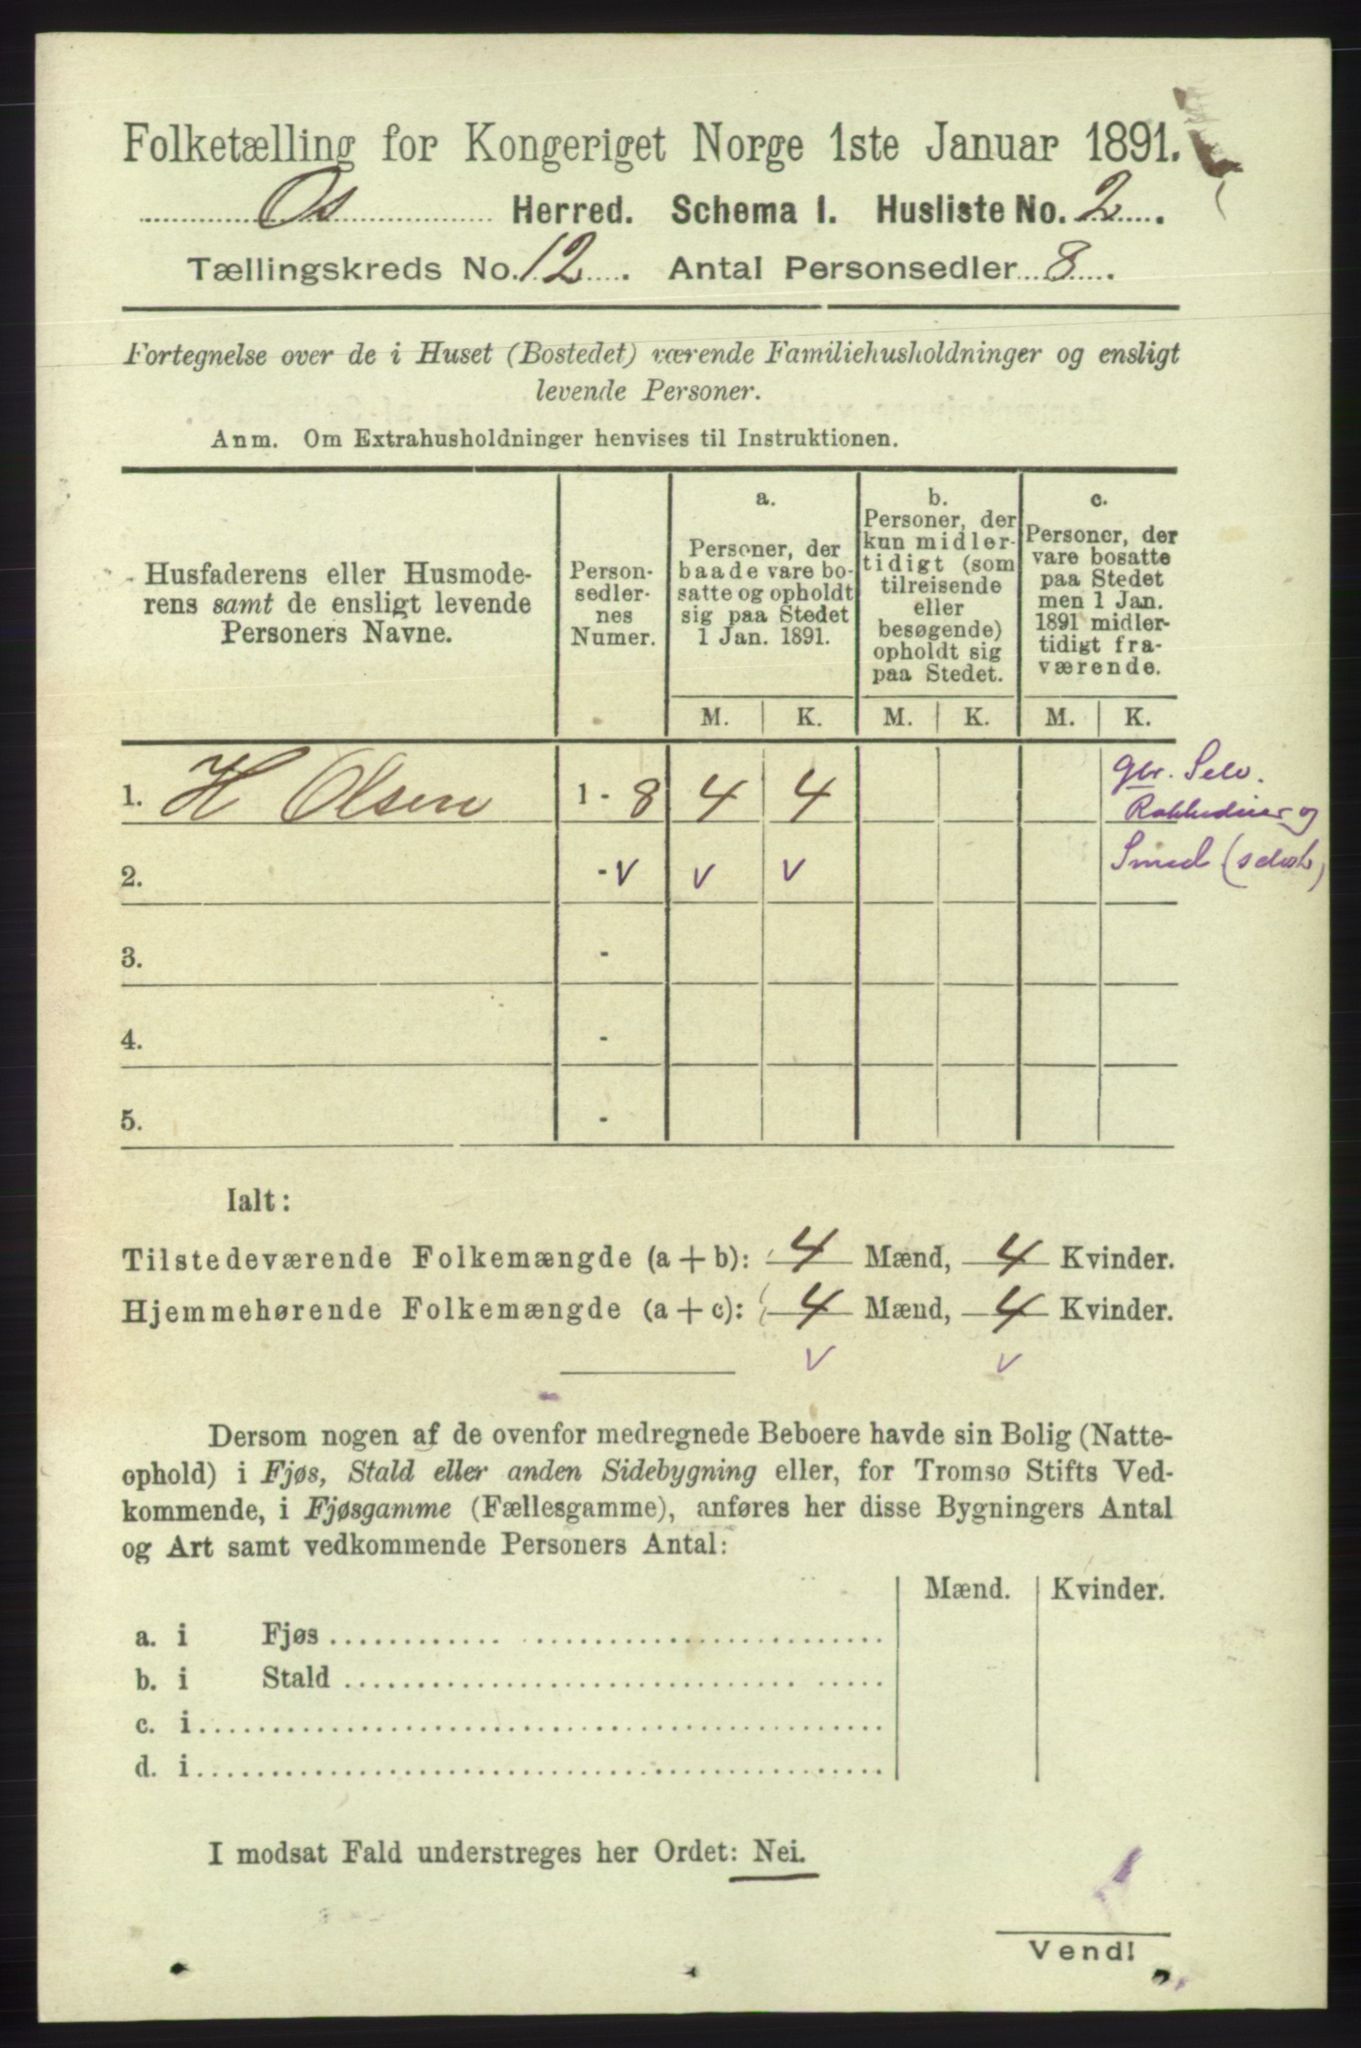 Folketælling for Kongeriget Norge 1ste Januar 1891.
Os Herred. Schema I. Husliste No. 2.
Tællingskreds No. 12. Antal Personsedler 8.
Fortegnelse over de i Huset (Bostedet) værende Familiehusholdninger og ensligt
levende Personer.
Anm. Om Extrahusholdninger henvises til Instruktionen.
Husfaderens eller Husmode-
rens samt de ensligt levende
Personers Navne.
Person-
sedler-
nes
Numer.
a.
Personer, der
baade vare bo-
satte og opholdt
sig paa Stedet
1 Jan. 1891.
b.
Personer, der
kun midler-
tidigt (som
tilreisende
eller
besøgende)
opholdt sig
paa Stedet.
c.
Personer, der
vare bosatte
paa Stedet
men 1 Jan.
1891 midler-
tidigt fra-
værende.
M. K. M. K. M. K.
1. H Olsen 1 - 8 4 4
gbr. Selv.
og
2. - v v v
Smed
3. -
4. -
5. -
Ialt:
Tilstedeværende Folkemængde (a + b): 4 Mænd, 4 Kvinder.
Hjemmehørende Folkemængde (a + c): 4 Mænd, 4 Kvinder.
v v
Dersom nogen af de ovenfor medregnede Beboere havde sin Bolig (Natte-
ophold) i Fjøs, Stald eller anden Sidebygning eller, for Tromsø Stifts Ved-
kommende, i Fjøsgamme (Fællesgamme), anføres her disse Bygningers Antal
og Art samt vedkommende Personers Antal:
Mænd. Kvinder.
a. i Fjøs
b. i Stald
c. i
d. i
I modsat Fald understreges her Ordet: Nei.
Vend!